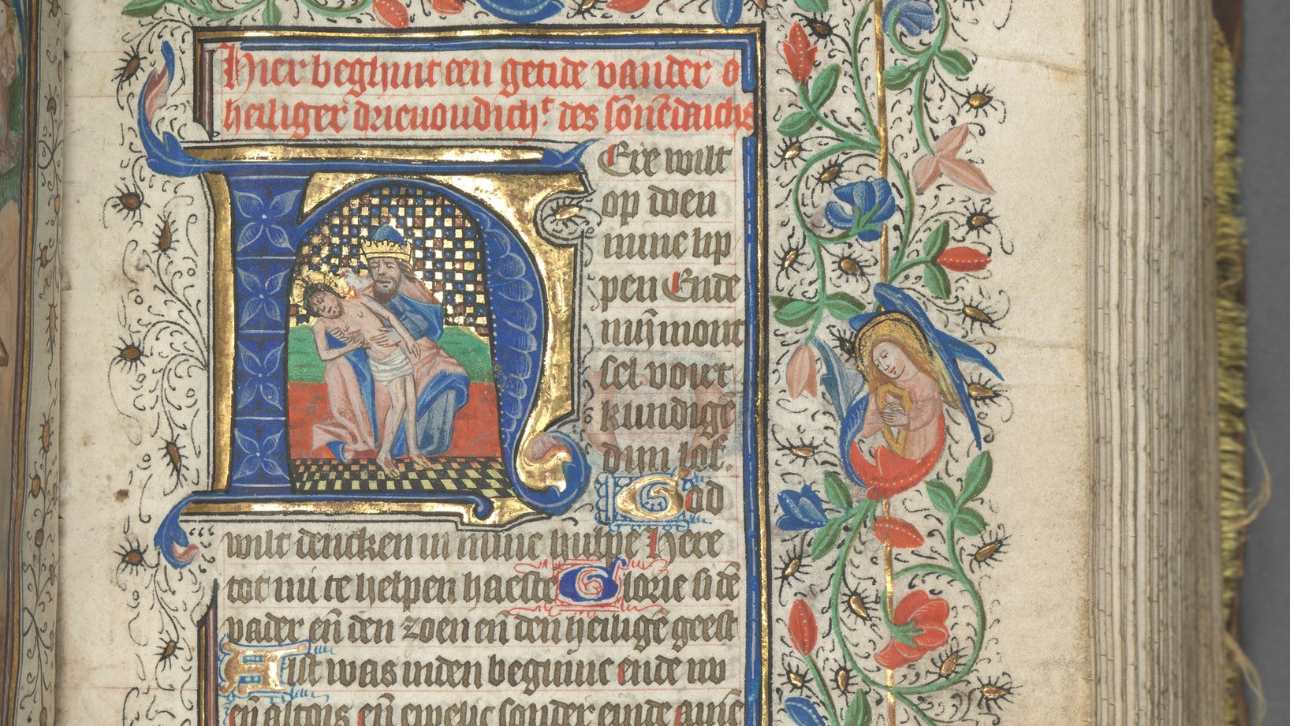 Hier beghint een getide vander o
heiliger drievoudich^t des sonēdaichs
HEre wilt
op doen
mine lip
pen Ende
mijn mont
sel voirt
kundigē
dijn lof.
God
wilt dencken in mine hulpe Here
tot mi te helpen haeste Glorie si dē
vader eñ den zoen eñ den heiligē geest
Alst was inden beginne ende nu
eñ altoes eñ ewelic sonder einde amē